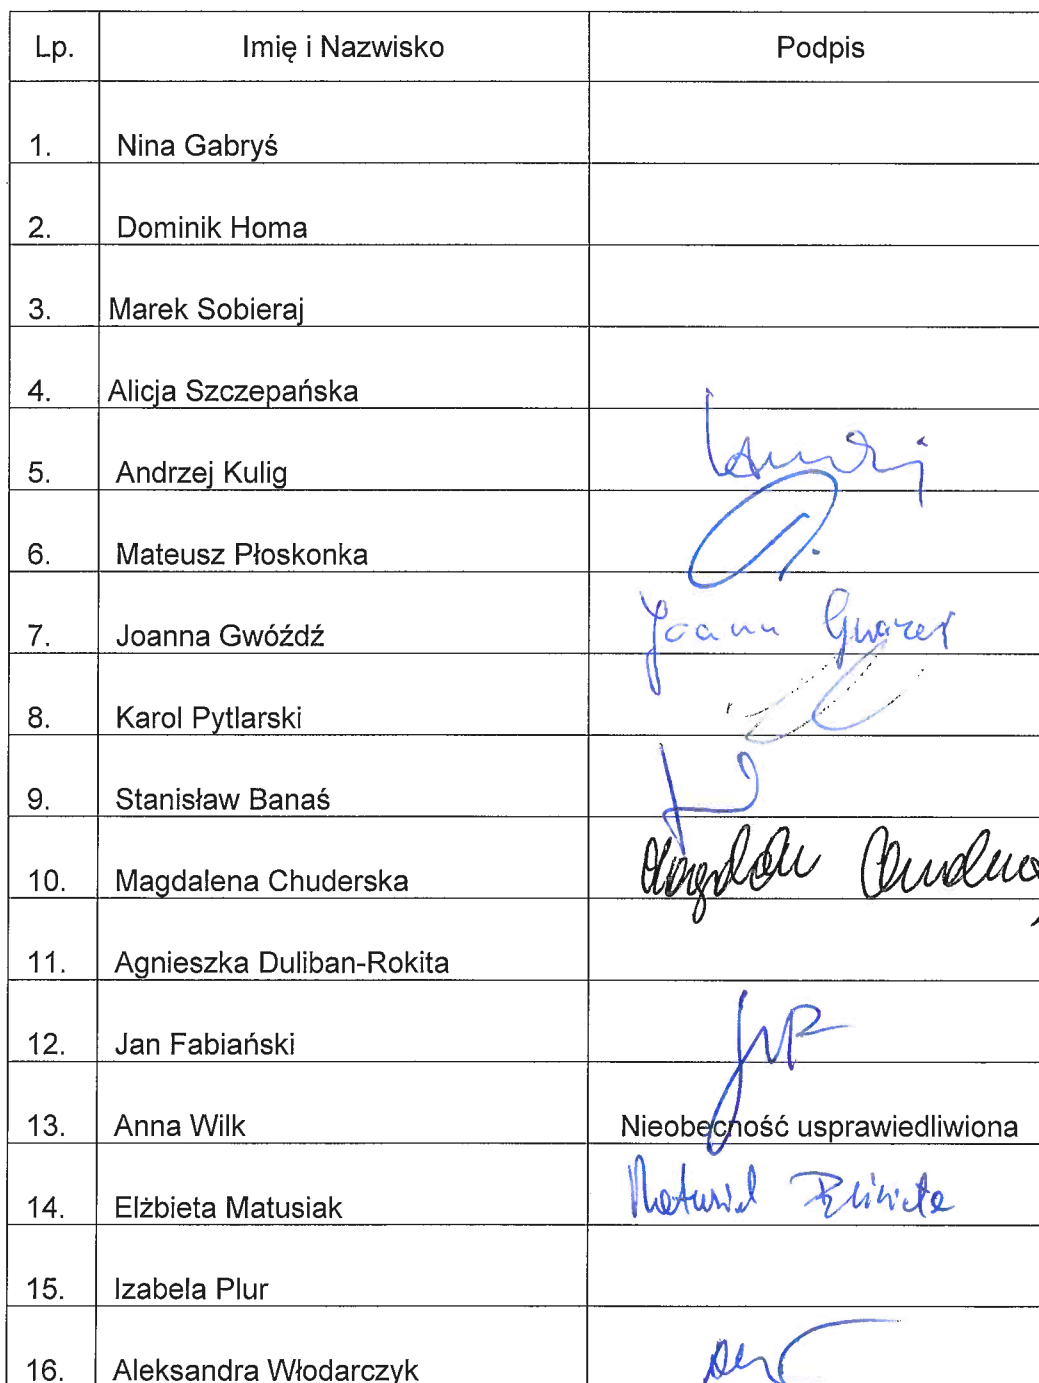 Lp. Imię i Nazwisko Podpis
1. Nina Gabryś
2. Dominik Homa
3. Marek Sobieraj
4. Alicja Szczepańska
5. Andrzej Kulig
6. Mateusz Płoskonka
7. Joanna Gwóźdź
8. Karol Pytlarski
9. Stanisław Banaś
10. Magdalena Chuderska
11. Agnieszka Duliban-Rokita
12. Jan Fabiański
13. Anna Wilk Nieobecność usprawiedliwiona
14. Elżbieta Matusiak
15. Izabela Plur
16. Aleksandra Włodarczyk